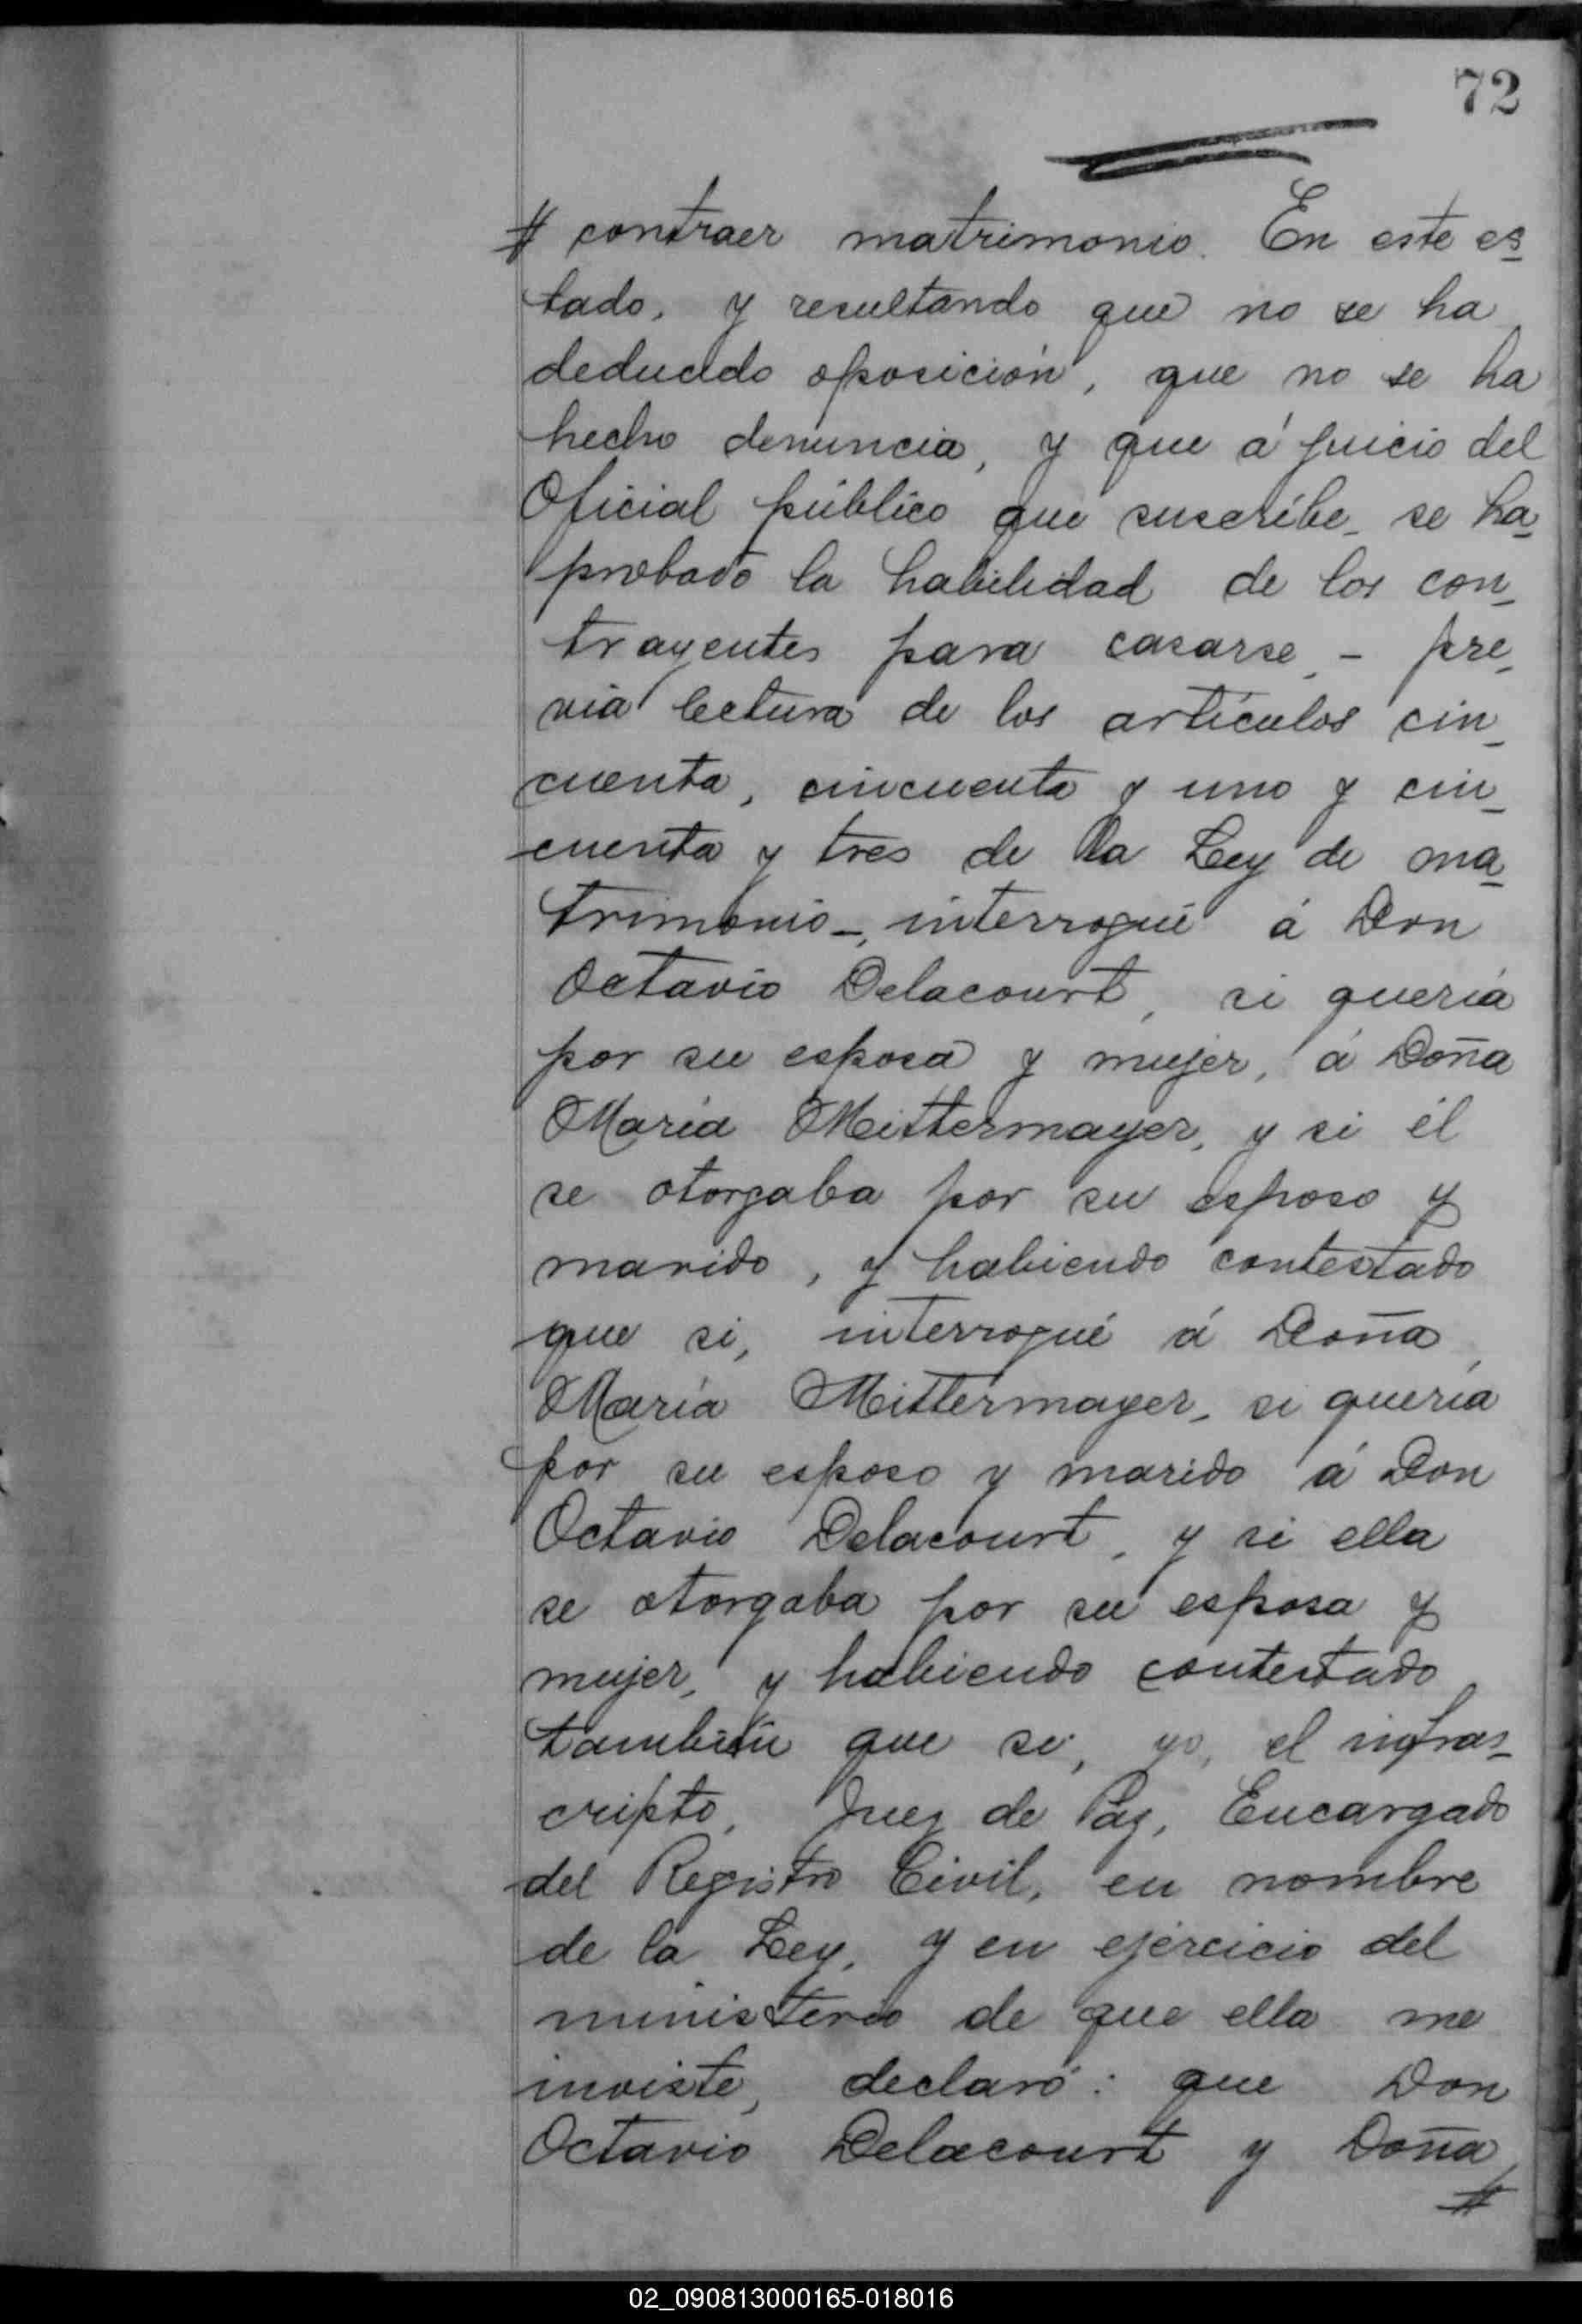 72
# contraer matrimonio. En este es-
tado, y resultando que no se ha
deducido oposición, que no se ha
hecho denuncia, y que á juicio del
Oficial público que suscribe, se ha
probado la habilidad de los con-
trayentes para casarse, - pre-
via lectura de los artículos cin-
cuenta, cincuenta y uno y cin-
cuenta y tres de la Ley de ma-
trimonio -, interrogué á Don
Octavio Delacourt, si quería
por su esposa y mujer, á Doña
María Mittermayer, y si él
se otorgaba por su esposo y
marido, y habiendo contestado
que si, interrogué á Doña
María Mittermayer, si quería
por su esposo y marido á Don
Octavio Delacourt, y si ella
se otorgaba por su esposa y
mujer, y habiendo contestado
también que si, yo, el infras-
cripto, Juez de Paz, Encargado
del Registro Civil, en nombre
de la Ley, y en ejercicio del
ministerio de que ella me
inviste, declaró: que Don
Octavio Delacourt y Doña
#
02_090813000165-018016